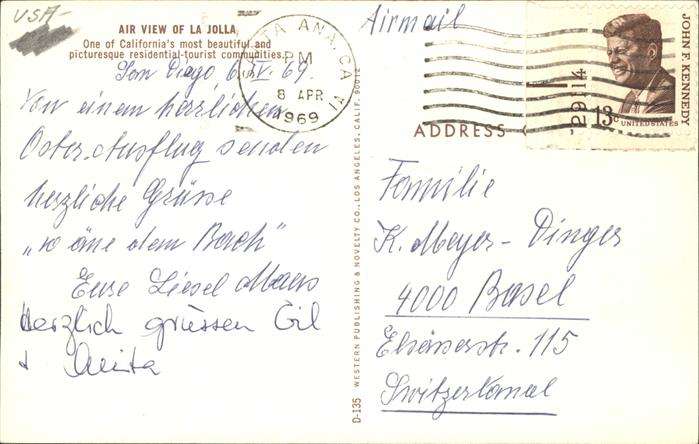 USA
AIR VIEW OF LA JOLLA
One of California's most beautiful and
picturesque residential-tourist communities.
San Diego 6.IV.69.
Von einem herrlichen
Oster-Ausflug senden
herzliche Grüsse
Eure Liesel
Herzlich grüssen
+ Anita
SANTA ANA, CA
PM
8 APR
1969
D-135 WESTERN PUBLISHING & NOVELTY CO., LOS ANGELES, CALIF. 90012
Airmail
29114
JOHN F. KENNEDY
13c UNITED STATES
ADDRESS
Familie
K. Meyer - Dinger
4000 Basel
Elsässerstr. 115
Switzerland